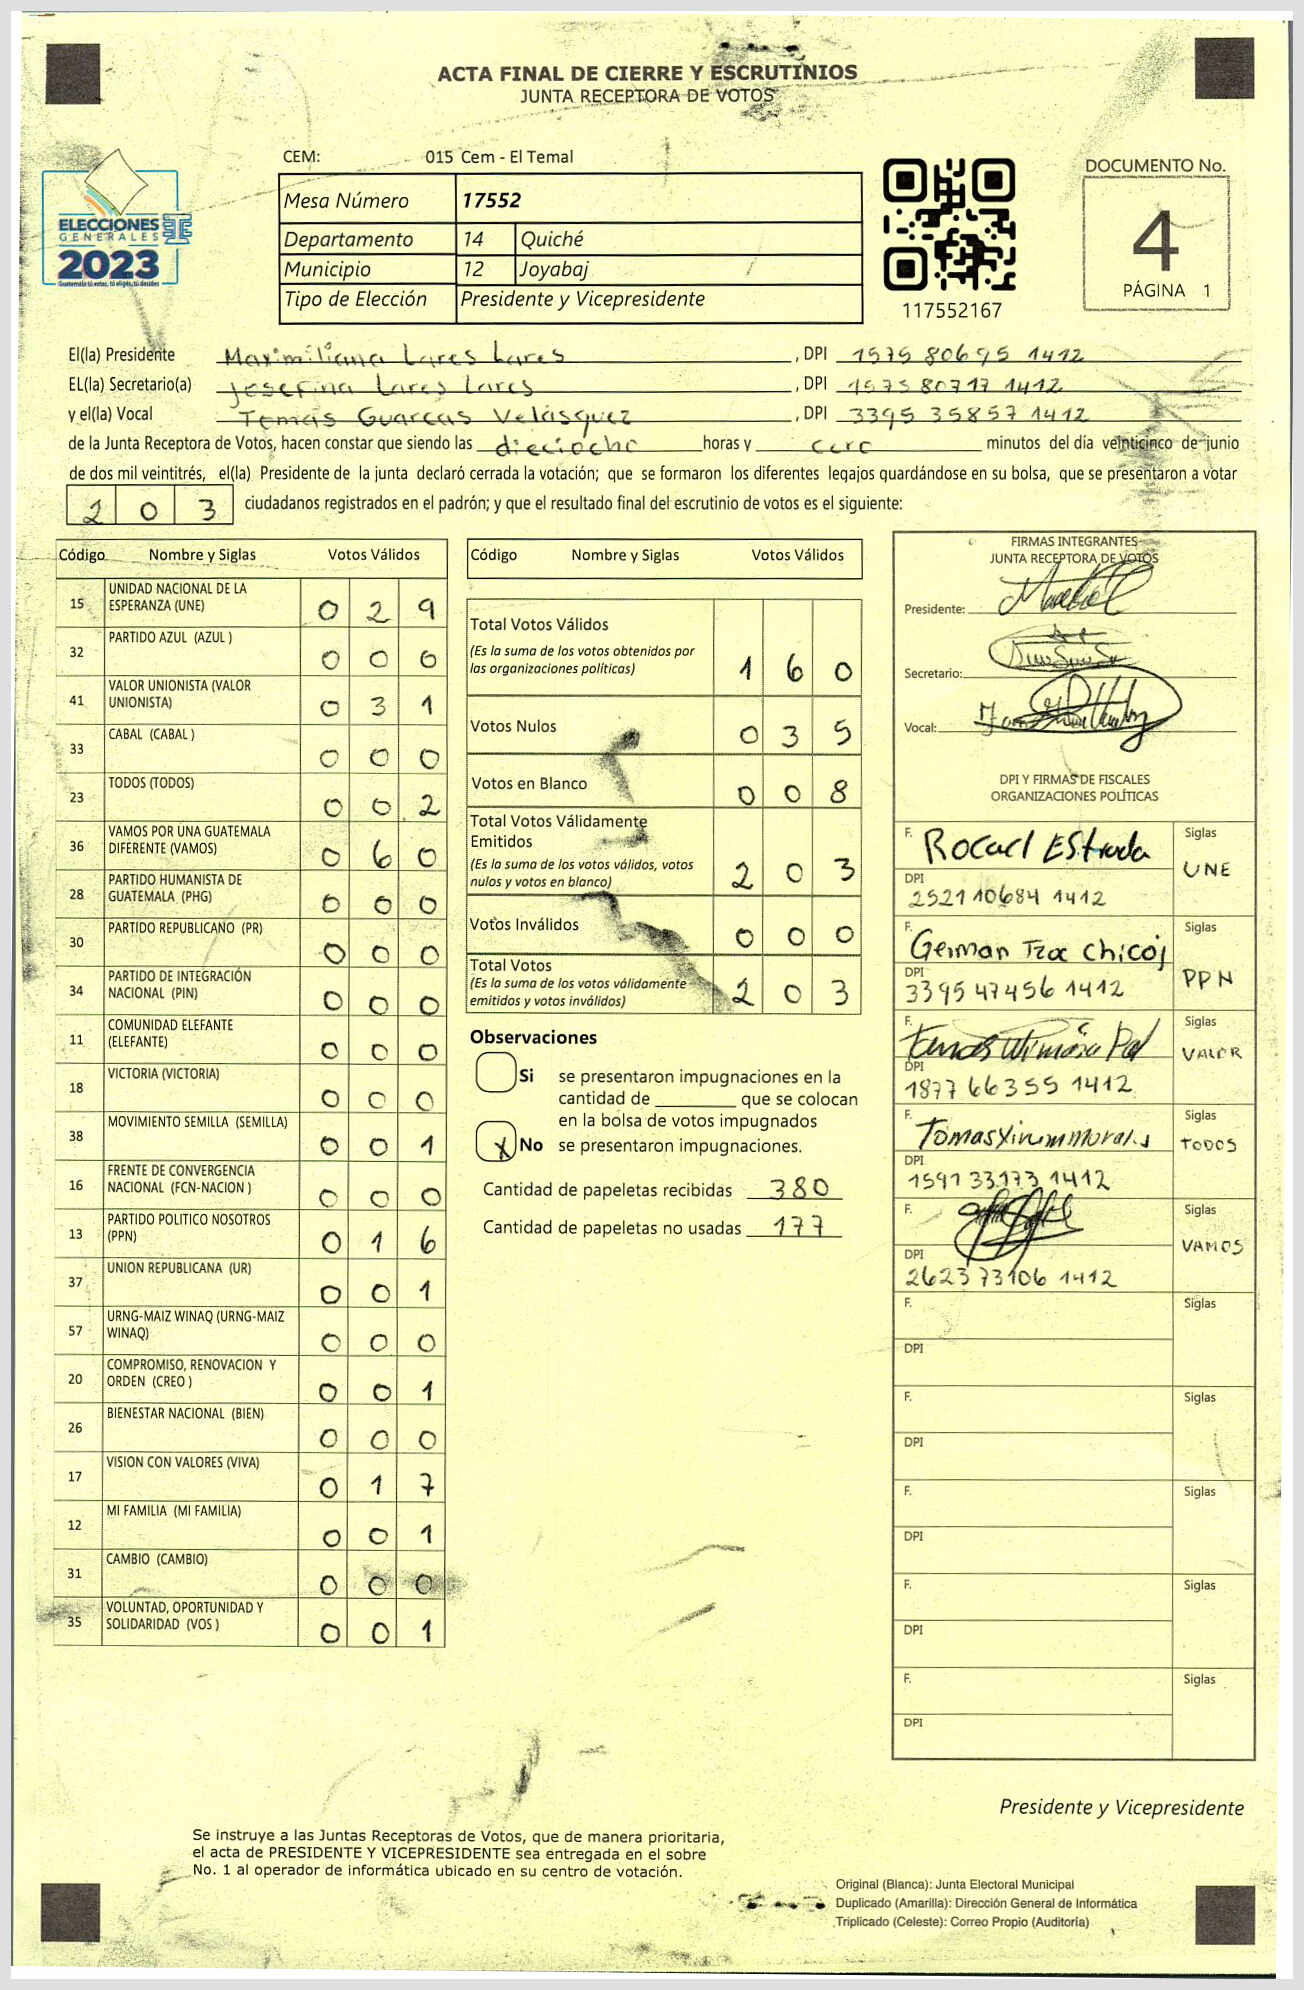 ACTA FINAL DE CIERRE Y ESCRUTINIOS
JUNTA RECEPTORA DE VOTOS
ELECCIONES
GENERALES
2023
Guatemala tú votas, tú eliges, tú decides
CEM: 015 Cem - El Temal
Mesa Número 17552
Departamento 14 Quiché
Municipio 12 Joyabaj
Tipo de Elección Presidente y Vicepresidente
117552167
DOCUMENTO No.
4
PÁGINA 1
El(la) Presidente Maximiliana Lares Lares , DPI 1575 80695 1412
EL(la) Secretario(a) Josefina Lares Lares , DPI 1575 80717 1412
y el(la) Vocal Tomás Guarcas Velásquez , DPI 3395 35857 1412
de la Junta Receptora de Votos, hacen constar que siendo las dieciocho horas y cero minutos del día veinticinco de junio
de dos mil veintitrés, el(la) Presidente de la junta declaró cerrada la votación; que se formaron los diferentes legajos quardándose en su bolsa, que se presentaron a votar
2 0 3 ciudadanos registrados en el padrón; y que el resultado final del escrutinio de votos es el siguiente:
Código Nombre y Siglas Votos Válidos
15 UNIDAD NACIONAL DE LA ESPERANZA (UNE) 0 2 9
32 PARTIDO AZUL (AZUL ) 0 0 0
41 VALOR UNIONISTA (VALOR UNIONISTA) 0 3 1
33 CABAL (CABAL ) 0 0 0
23 TODOS (TODOS) 0 0 2
36 VAMOS POR UNA GUATEMALA DIFERENTE (VAMOS) 0 6 0
28 PARTIDO HUMANISTA DE GUATEMALA (PHG) 0 0 0
30 PARTIDO REPUBLICANO (PR) 0 0 0
34 PARTIDO DE INTEGRACIÓN NACIONAL (PIN) 0 0 0
11 COMUNIDAD ELEFANTE (ELEFANTE) 0 0 0
18 VICTORIA (VICTORIA) 0 0 0
38 MOVIMIENTO SEMILLA (SEMILLA) 0 0 1
16 FRENTE DE CONVERGENCIA NACIONAL (FCN-NACION ) 0 0 0
13 PARTIDO POLITICO NOSOTROS (PPN) 0 1 6
37 UNION REPUBLICANA (UR) 0 0 1
57 URNG-MAIZ WINAQ (URNG-MAIZ WINAQ) 0 0 0
20 COMPROMISO, RENOVACION Y ORDEN (CREO ) 0 0 1
26 BIENESTAR NACIONAL (BIEN) 0 0 0
17 VISION CON VALORES (VIVA) 0 1 7
12 MI FAMILIA (MI FAMILIA) 0 0 1
31 CAMBIO (CAMBIO) 0 0 0
35 VOLUNTAD, OPORTUNIDAD Y SOLIDARIDAD (VOS ) 0 0 1
Código Nombre y Siglas Votos Válidos
Total Votos Válidos
(Es la suma de los votos obtenidos por
las organizaciones políticas) 1 6 0
Votos Nulos 0 3 5
Votos en Blanco 0 0 8
Total Votos Válidamente
Emitidos
(Es la suma de los votos válidos, votos
nulos y votos en blanco) 2 0 3
Votos Inválidos 0 0 0
Total Votos
(Es la suma de los votos válidamente
emitidos y votos inválidos) 2 0 3
Observaciones
Si se presentaron impugnaciones en la
cantidad de ________ que se colocan
en la bolsa de votos impugnados
X No se presentaron impugnaciones.
Cantidad de papeletas recibidas 380
Cantidad de papeletas no usadas 177
FIRMAS INTEGRANTES
JUNTA RECEPTORA DE VOTOS
Presidente:
Secretario:
Vocal:
DPI Y FIRMAS DE FISCALES
ORGANIZACIONES POLÍTICAS
F. Rocael Estrada Siglas
DPI 2521 10684 1412 UNE
F. German Tzoc Chicoj Siglas
DPI 3395 47456 1412 PPN
F. Siglas
DPI 1877 66355 1412 VALOR
F. Siglas
DPI 1591 33173 1412 TODOS
F. Siglas
DPI 2623 73106 1412 VAMOS
F. Siglas
DPI
F. Siglas
DPI
F. Siglas
DPI
F. Siglas
DPI
F. Siglas
DPI
Presidente y Vicepresidente
Se instruye a las Juntas Receptoras de Votos, que de manera prioritaria,
el acta de PRESIDENTE Y VICEPRESIDENTE sea entregada en el sobre
No. 1 al operador de informática ubicado en su centro de votación.
Original (Blanca): Junta Electoral Municipal
Duplicado (Amarilla): Dirección General de Informática
Triplicado (Celeste): Correo Propio (Auditoría)